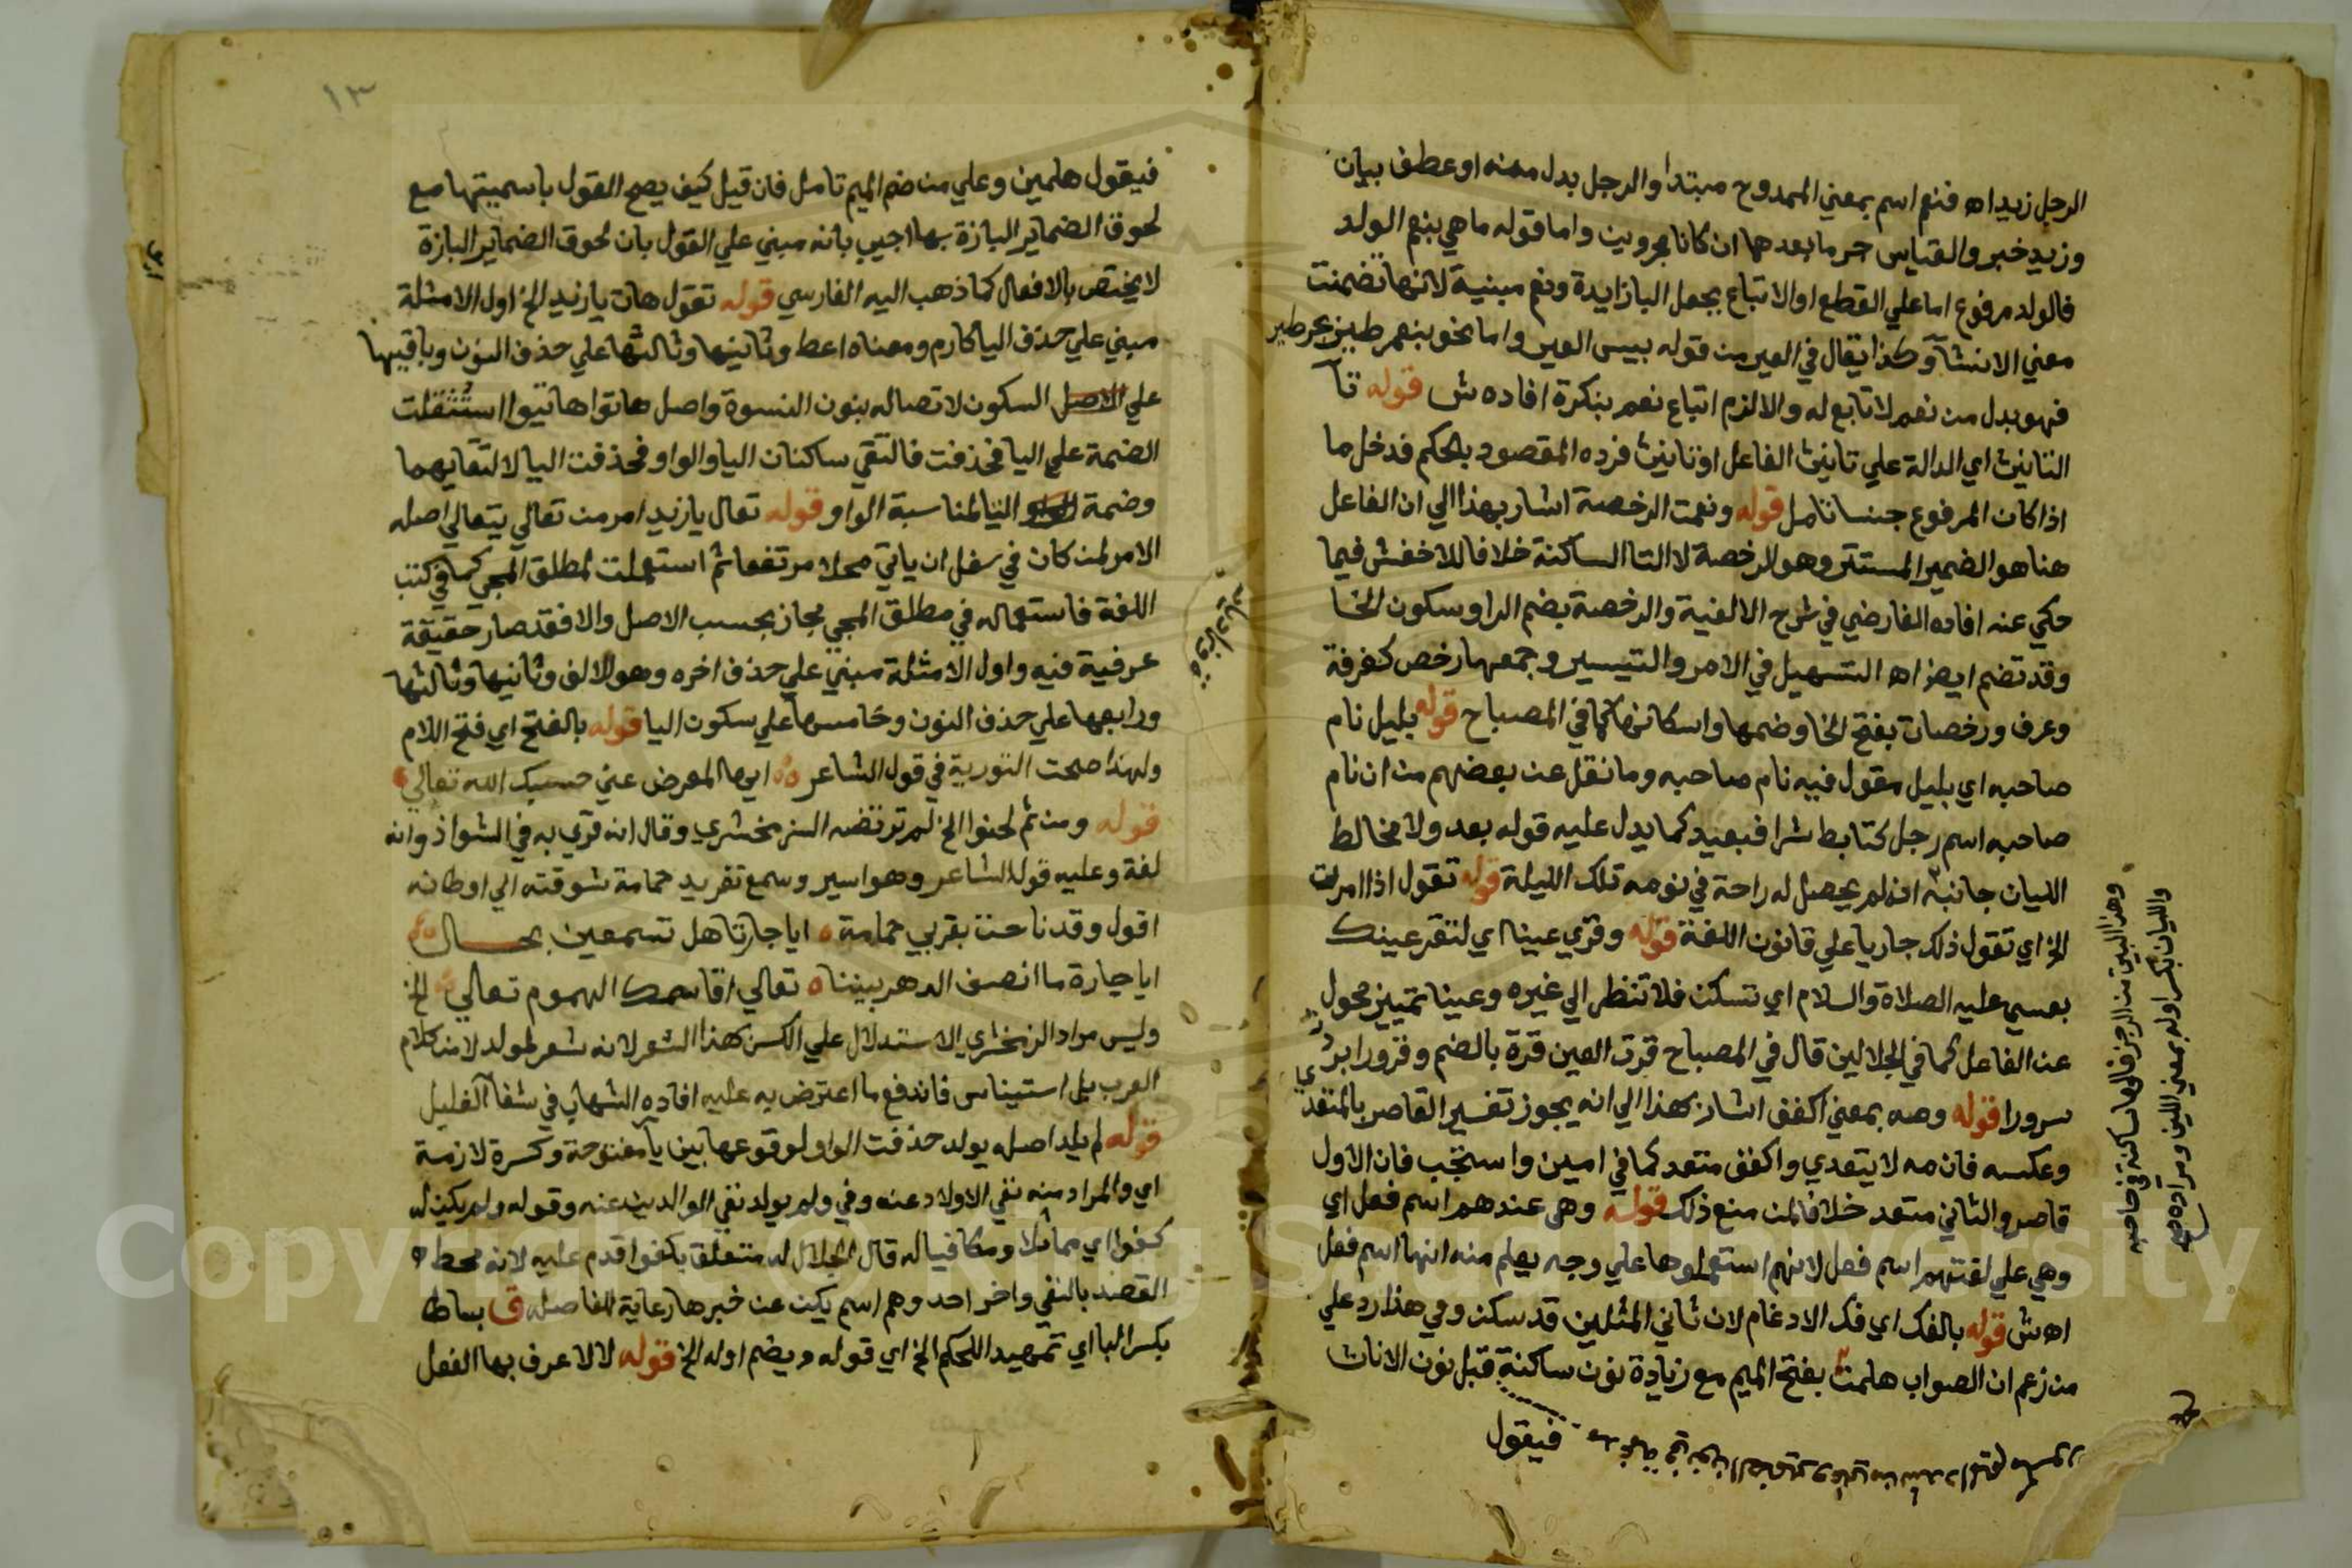 الرجل زيد اه فنعم اسم بمعني الممدوح مبتدا والرجل بدل منه او عطف بيان
وزيد خبر والقياس جر ما بعدها ان كانا مجرورين واما قوله ماهي بنعم الولد
فالولد مرفوع اما علي القطع او الاتباع بجعل البا زايدة ونعم مبنية لانها تضمنت
معني الانشآ وكذا يقال في العير من قوله بييس العير واما نحو بنعم طير
فهو بدل من نعم لا تابع له والا لزم اتباع نعم بنكرة افاده ش قوله تآ
التانيث اي الدالة علي تانيث الفاعل او تانيث فرده المقصود بالحكم فدخل ما
اذا كان المرفوع جنسا تامل قوله ونعمت الرخصة اشار بهذا الي ان الفاعل
هنا هو الضمير المستتر وهو الرخصة لا التا الساكنة خلافا للاخفش فيما
حكي عنه افاده الفارضي في شرح الالفية والرخصة بضم الرا وسكون الخا
وقد تضم ايضا اه التسهيل في الامر والتيسير وجمعها رخص كغرفة
وغرف ورخصات بفتح الخا وضمها واسكانها كما في المصباح قوله بليل نام
صاحبه اي بليل مقول فيه نام صاحبه وما نقل عن بعضهم من ان نام
صاحبه اسم رجل كتابط شرا فبعيد كما يدل عليه قوله بعد ولا مخالط
الليان جانبه انه لم يحصل له راحة في نومه تلك الليلة قوله تقول اذا امرت
الخ اي تقول ذلك جاريا علي قانون اللغة قوله وقري عينا اي لتقر عينك
بعيسي عليه الصلاة والسلام اي تسكن فلا تنظر الي غيره وعينا تمييز محول
عن الفاعل كما في الجلالين قال في المصباح قرت العين قرة بالضم وقرورا بردت
سرورا قوله وصه بمعني اكفف اشار بهذا الي انه يجوز تفسير القاصر بالمتعدي
وعكسه فان مه لا يتعدي واكفف متعد كما في امين واستجب فان الاول
قاصر والثاني متعد خلافا لمن منع ذلك قوله وهي عندهم اسم فعل اي
وهي علي لغتهم اسم فعل لانهم استعملوها علي وجه يعلم منه انها اسم فعل
اه ش قوله بالفك اي فك الادغام لان ثاني المثلين قد سكن وفي هذا رد علي
من زعم ان الصواب هلمن بفتح الميم مع زيادة نون ساكنة قبل نون الاناث
فيقول
وهذا البيت من الرجز فالها ساكنة في صاحبه
والليان بكسر اوله بمعني اللين ومراده
١٣
فيقول هلمين وعلي من ضم الميم تامل فان قيل كيف يصح القول باسميتها مع
لحوق الضماير البارزة بها اجيب بانه مبني علي القول بان لحوق الضماير البارزة
لا يختص بالافعال كما ذهب اليه الفارسي قوله تقول هات يا زيد الخ اول الامثلة
مبني علي حذف اليا كارم ومعناه اعط وثانيها وثالثها علي حذف النون وباقيها
علي الاصل السكون لاتصاله بنون النسوة واصل هاتوا هاتيوا استثقلت
الضمة علي اليا فحذفت فالتقي ساكنان اليا والواو فحذفت اليا لالتقايهما
وضمة التا لمناسبة الواو قوله تعال يا زيد امر من تعالي يتعالي اصله
الامر لمن كان في سفل ان ياتي محلا مرتفعا ثم استعملت لمطلق المجي كما في كتب
اللغة فاستعماله في مطلق المجي مجاز بحسب الاصل والا فقد صار حقيقة
عرفية فيه واول الامثلة مبني علي حذف اخره وهو الالف وثانيها وثالثها
ورابعها علي حذف النون وخامسها علي سكون اليا قوله بالفتح اي فتح اللام
ولهذا صحت التورية في قول الشاعر ايها المعرض عني حسبك الله تعالي
قوله ومن ثم لحنوا الخ لم ترتضه الزمخشري وقال انه قري به في الشواذ وانه
لغة وعليه قول الشاعر وهو اسير وسمع تغريد حمامة شوقته الي اوطانه
اقول وقد ناحت بقربي حمامة ايا جارتا هل تسمعين بحالي
ايا جارة ما انصف الدهر بيننا تعالي اقاسمك الهموم تعالي الخ
وليس مراد الزمخشري الاستدلال علي الكسر بهذا الشعر لانه شعر لمولد لا من كلام
العرب بل استيناس فاندفع ما اعترض به عليه افاده الشهاب في شفآ الغليل
قوله لم يلد اصله يولد حذفت الواو لوقوعها بين يآ مفتوحة وكسرة لازمة
اي والمراد منه نفي الاولاد عنه وفي ولم يولد نفي الوالدين عنه وقوله ولم يكن له
كفوا اي مماثلا ومكافيا له قال الجلال له متعلق بكفوا قدم عليه لانه محط
القصد بالنفي واخر احد وهو اسم يكن عن خبرها رعاية للفاصله ق بساطا
بكسر البا اي تمهيدا للحكم الخ اي قوله ويضم اوله الخ قوله لا لا عرف بها الفعل